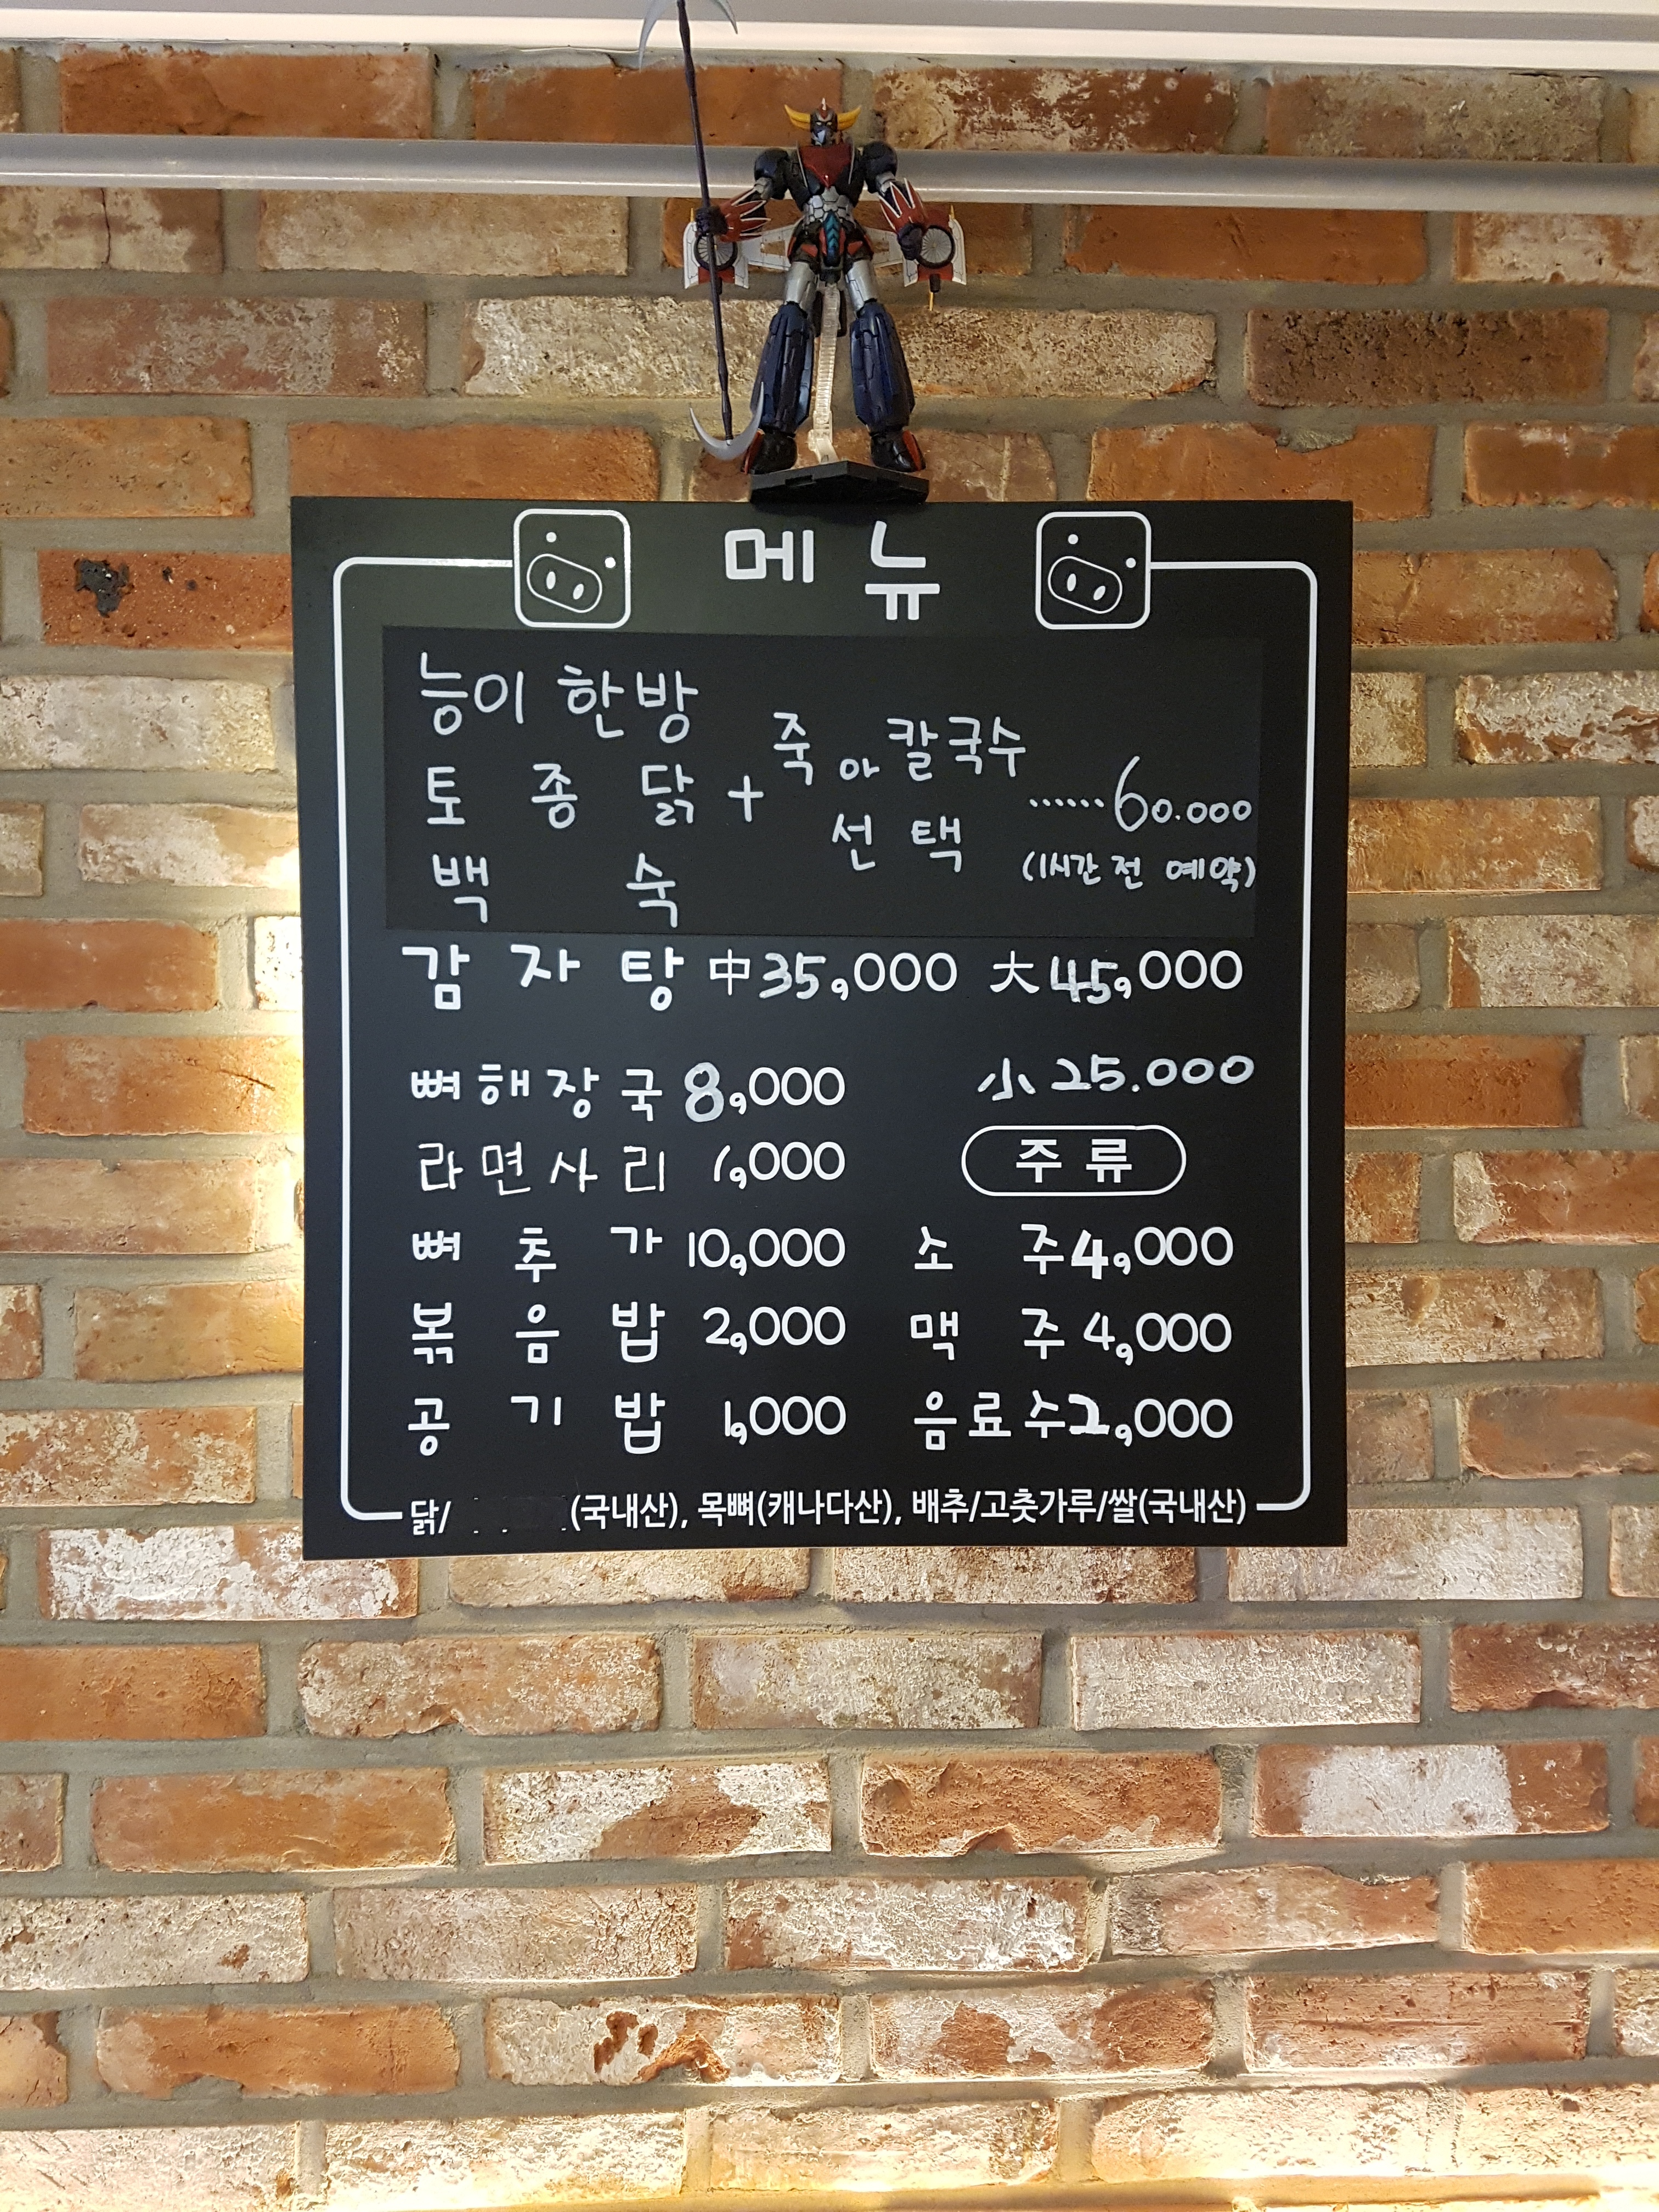 메뉴
능이 한방
토종닭 + 죽 or 칼국수 ······60.000
백숙 선택 (1시간 전 예약)
감자탕 中 35,000 大 45,000
뼈해장국 8,000 小 25.000
라면사리 1,000 주류
뼈추가 10,000 소주 4,000
볶음밥 2,000 맥주 4,000
공기밥 1,000 음료수 2,000
닭/ (국내산), 목뼈(캐나다산), 배추/고춧가루/쌀(국내산)